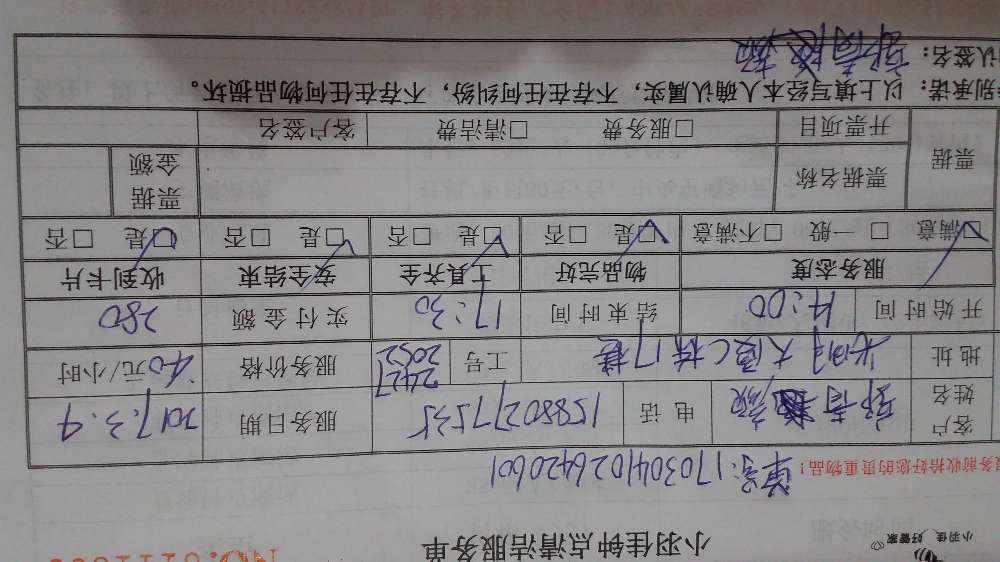 小羽佳 好管家
小羽佳钟点清洁服务单
单号:170304102642060
服务前收拾好您的贵重物品!
客户姓名 电话 15880277535 服务日期 2017.3.4
地址 大厦C栋 工号 2427 2052 服务价格 40元/小时
开始时间 14:00 结束时间 17:30 实付金额 280
服务态度 物品完好 工具齐全 安全结束 收到卡片
满意 □一般 □不满意 □是 □否 □是 □否 □是 □否 □是 □否
票据 票据名称 票据金额
开票项目 □服务费 □清洁费 客户签名
别承诺:以上填写经本人确认属实,不存在任何纠纷,不存在任何物品损坏。
认签名: